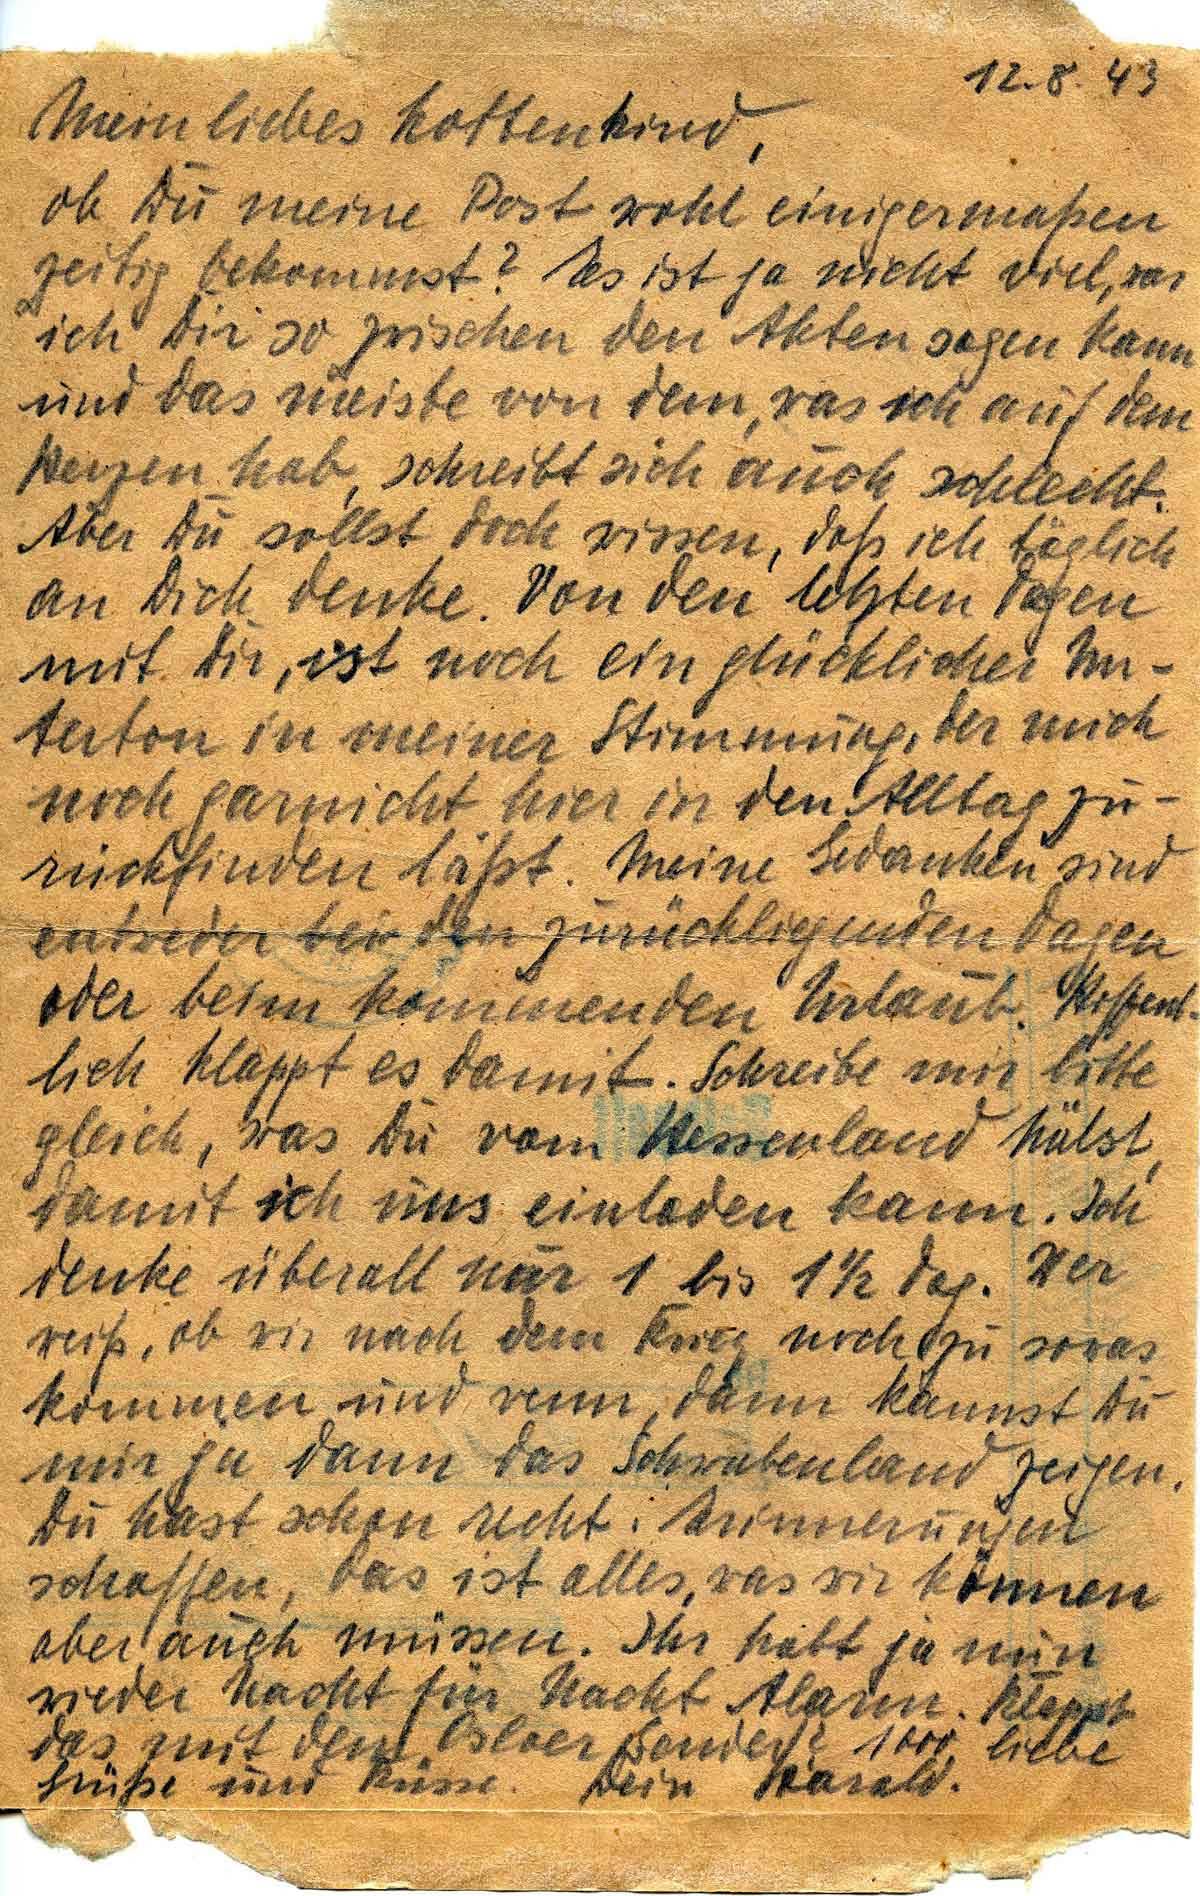 12.8.43
Mein liebes Kottenkind,
ob Du meine Post wohl einigermaßen
zeitig bekommst? Es ist ja nicht viel, was
ich Dir so zwischen den Akten sagen kann
und das meiste von dem, was ich auf dem
Herzen hab, schreibt sich auch schlecht.
Aber Du sollst doch wissen, daß ich täglich
an Dich denke. Von den letzten Tagen
mit Dir, ist noch ein glücklicher Un-
terton in meiner Stimmung, der mich
noch garnicht hier in den Alltag zu-
rückfinden läßt. Meine Gedanken sind
entweder bei den zurückliegenden Tagen
oder beim kommenden Urlaub. Hoffent-
lich klappt es damit. Schreibe mir bitte
gleich, was Du vom Hessenland hälst,
damit ich uns einladen kann. Ich
denke überall nur 1 bis 1 1/2 Tag. Wer
weiß, ob wir nach dem Krieg noch zu sowas
kommen und wenn, dann kannst Du
mir ja dann das Schwabenland zeigen.
Du hast schon recht. Erinnerungen
schaffen, das ist alles, was wir können
aber auch müssen. Ihr habt ja nun
wieder Nacht für Nacht Alarm. Klappt
das mit dem Osloer Sender? 1000 liebe
Grüße und Küsse. Dein Harald.